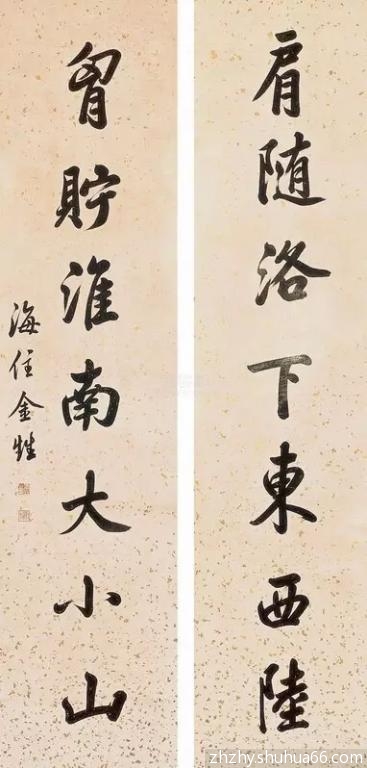 肩随洛下東西陸
胷貯淮南大小山
海住金甡
zhzhy.shuhua66.com